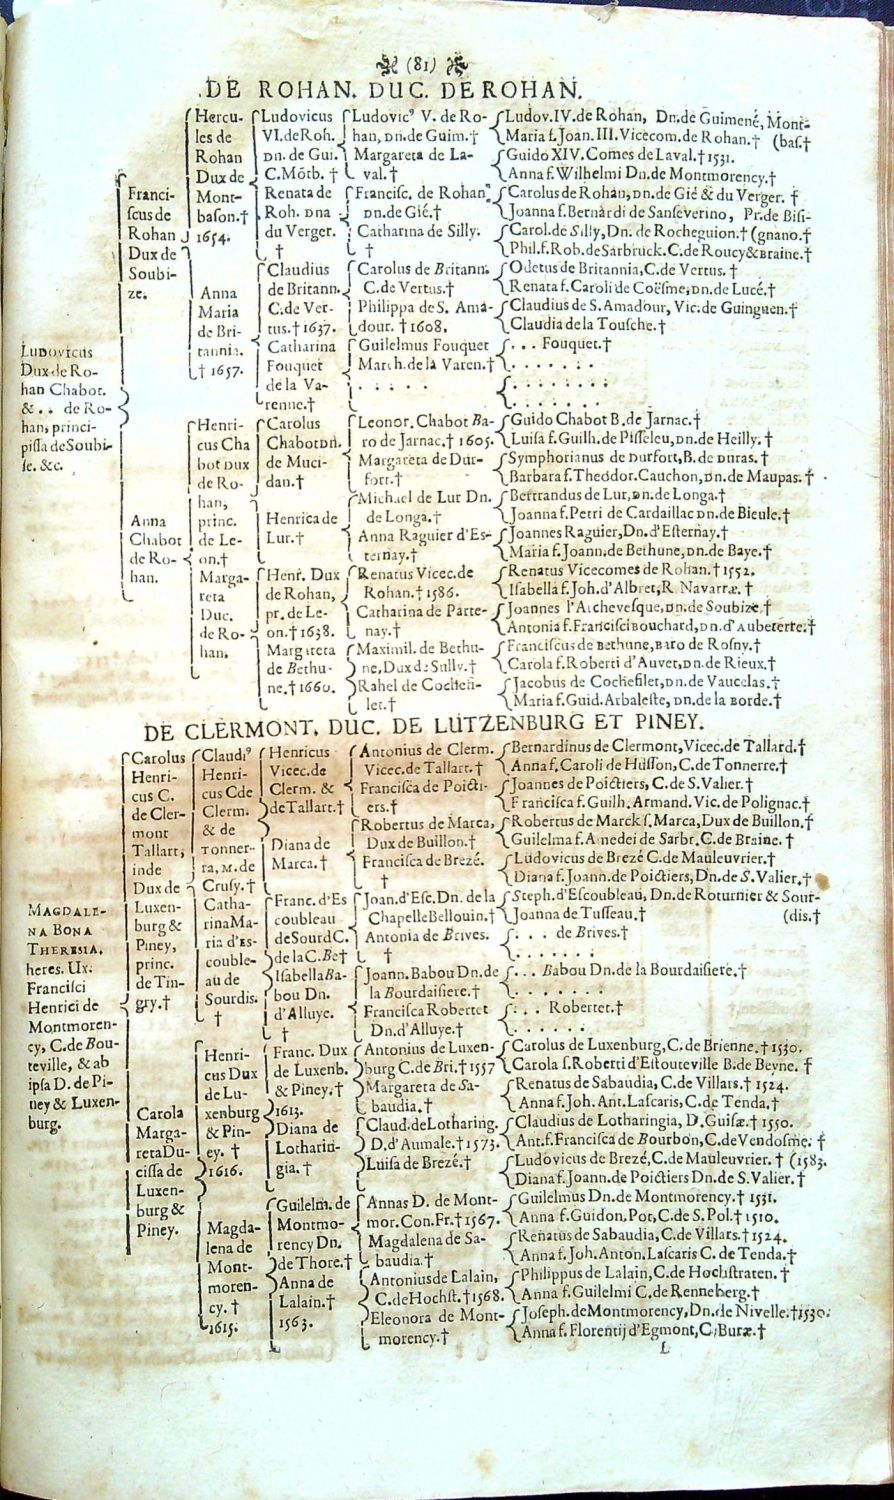 (81)
DE ROHAN. DUC. DE ROHAN.
Ludovicus
Dux de Ro-
han Chabot.
& . . de Ro-
han, princi-
pissa de Soubi-
se. &c.
Franci-
scus de
Rohan
Dux de
Soubi-
ze.
Anna
Chabot
de Ro-
han.
Hercu-
les de
Rohan
Dux de
Mont-
bason.†
1654.
Anna
Maria
de Bri-
tannia.
† 1657.
Henri-
cus Cha
bot Dux
de Ro-
han,
princ.
de Le-
on.†
Marga-
reta
Duc.
de Ro-
han.
Ludovicus
VI. de Roh.
Dn. de Gui.
C. Mõtb. †
Renata de
Roh. Dna
du Verger.
†
Claudius
de Britann.
C. de Ver-
tus.† 1637.
Catharina
Fouquet
de la Va-
renne.†
Carolus
Chabot Dn.
de Muci-
dan.†
Henrica de
Lur.†
Henr. Dux
de Rohan,
pr. de Le-
on.† 1638.
Margareta
de Bethu-
ne.† 1660.
Ludovic⁹ V. de Ro-
han, Dn. de Guim.†
Margareta de La-
val.†
Francisc. de Rohan
Dn. de Gié.†
Catharina de Silly.
†
Carolus de Britann.
C. de Vertus.†
Philippa de S. Ama-
dour. † 1608.
Guilelmus Fouquet
March. de la Varen.†
. . . . .
Leonor. Chabot Ba-
ro de Jarnac.† 1605.
Margareta de Dur-
fort.†
Michael de Lur Dn.
de Longa.†
Anna Raguier d'Es-
ternay.†
Renatus Vicec. de
Rohan.† 1586.
Catharina de Parte-
nay.†
Maximil. de Bethu-
ne, Dux de Sully.†
Rahel de Cochefi-
let.†
Ludov. IV. de Rohan, Dn. de Guimené, Mont-
Maria f. Joan. III. Vicecom. de Rohan.† (bas.†
Guido XIV. Comes de Laval.† 1531.
Anna f. Wilhelmi Dn. de Montmorency.†
Carolus de Rohan, Dn. de Gié & du Verger. †
Joanna f. Bernardi de Sanseverino, Pr. de Bisi-
Carol. de Silly, Dn. de Rocheguion.† (gnano.†
Phil. f. Rob. de Sarbruck. C. de Roucy & Braine.†
Odetus de Britannia, C. de Vertus. †
Renata f. Caroli de Coësme, Dn. de Lucé.†
Claudius de S. Amadour, Vic. de Guinguen.†
Claudia de la Tousche.†
. . . Fouquet.†
. . . . . .
. . . . . . .
. . . . . .
Guido Chabot B. de Jarnac.†
Luisa f. Guilh. de Pisseleu, Dn. de Heilly. †
Symphorianus de Durfort, B. de Duras. †
Barbara f. Theodor. Cauchon, Dn. de Maupas. †
Bertrandus de Lur, Dn. de Longa.†
Joanna f. Petri de Cardaillac Dn. de Bieule.†
Joannes Raguier, Dn. d'Esternay.†
Maria f. Joann. de Bethune, Dn. de Baye.†
Renatus Vicecomes de Rohan.† 1552.
Isabella f. Joh. d'Albret, R. Navarræ. †
Joannes l'Archevesque, Dn. de Soubize.†
Antonia f. Francisci Bouchard, Dn. d'Aubeterre.†
Franciscus de Bethune, Baro de Rosny.†
Carola f. Roberti d'Auvet, Dn. de Rieux.†
Jacobus de Cochefilet, Dn. de Vaucelas.†
Maria f. Guid. Arbaleste, Dn. de la Borde.†
DE CLERMONT. DUC. DE LUTZENBURG ET PINEY.
Magdale-
na Bona
Theresia.
heres. Ux.
Francisci
Henrici de
Montmoren-
cy, C. de Bou-
teville, & ab
ipsa D. de Pi-
ney & Luxen-
burg.
Carolus
Henri-
cus C.
de Cler-
mont
Tallart,
inde
Dux de
Luxen-
burg &
Piney,
princ.
de Tin-
gry.†
Carola
Marga-
reta Du-
cissa de
Luxen-
burg &
Piney.
Claudi⁹
Henri-
cus C de
Clerm.
& de
Tonner-
ra, M. de
Crusy.†
Catha-
rina Ma-
ria d'Es-
couble-
au de
Sourdis.
†
Henri-
cus Dux
de Lu-
xenburg
& Pin-
ey. †
1616.
Magda-
lena de
Mont-
moren-
cy. †
1615.
Henricus
Vicec. de
Clerm. &
de Tallart.†
Diana de
Marca.†
Franc. d'Es
coubleau
de Sourd C.
de la C. Be†
Isabella Ba-
bou Dn.
d'Alluye.
†
Franc. Dux
de Luxenb.
& Piney.†
1613.
Diana de
Lotharin-
gia. †
Guilelm. de
Montmo-
rency Dn.
de Thore.†
Anna de
Lalain.†
1563.
Antonius de Clerm.
Vicec. de Tallart.†
Francisca de Poicti-
ers.†
Robertus de Marca,
Dux de Buillon.†
Francisca de Brezé.
†
Joan. d'Esc. Dn. de la
Chapelle Bellouin.†
Antonia de Brives.
†
Joann. Babou Dn. de
la Bourdaisiere.†
Francisca Robertet
Dn. d'Alluye.†
Antonius de Luxen-
burg C. de Bri.† 1557
Margareta de Sa-
baudia.†
Claud. de Lotharing.
D. d'Aumale.† 1573.
Luisa de Brezé.†
Annas D. de Mont-
mor. Con. Fr.† 1567.
Magdalena de Sa-
baudia.†
Antonius de Lalain,
C. de Hochst.† 1568.
Eleonora de Mont-
morency.†
Bernardinus de Clermont, Vicec. de Tallard.†
Anna f. Caroli de Husson, C. de Tonnerre.†
Joannes de Poictiers, C. de S. Valier.†
Francisca f. Guilh. Armand. Vic. de Polignac.†
Robertus de Marck s. Marca, Dux de Buillon.†
Guilelma f. Amedei de Sarbr. C. de Braine. †
Ludovicus de Brezé C. de Mauleuvrier.†
Diana f. Joann. de Poictiers, Dn. de S. Valier.†
Steph. d'Escoubleau, Dn. de Roturnier & Sour-
Joanna de Tusseau.† (dis.†
. . . de Brives.†
. . . . . .
. . . Babou Dn. de la Bourdaisiere.†
. . . . . . .
. . . Robertet.†
. . . . . .
Carolus de Luxenburg, C. de Brienne.† 1530.
Carola f. Roberti d'Estouteville B. de Beyne. †
Renatus de Sabaudia, C. de Villars.† 1524.
Anna f. Joh. Ant. Lascaris, C. de Tenda.†
Claudius de Lotharingia, D. Guisæ.† 1550.
Ant. f. Francisca de Bourbon, C. de Vendosme. †
Ludovicus de Brezé, C. de Mauleuvrier. † (1583.
Diana f. Joann. de Poictiers Dn. de S. Valier.†
Guilelmus Dn. de Montmorency.† 1531.
Anna f. Guidon. Pot, C. de S. Pol.† 1510.
Renatus de Sabaudia, C. de Villars.† 1524.
Anna f. Joh. Anton. Lascaris C. de Tenda.†
Philippus de Lalain, C. de Hochstraten. †
Anna f. Guilelmi C. de Renneberg.†
Joseph. de Montmorency, Dn. de Nivelle.† 1530.
Anna f. Florentij d'Egmont, C. Buræ.†
L